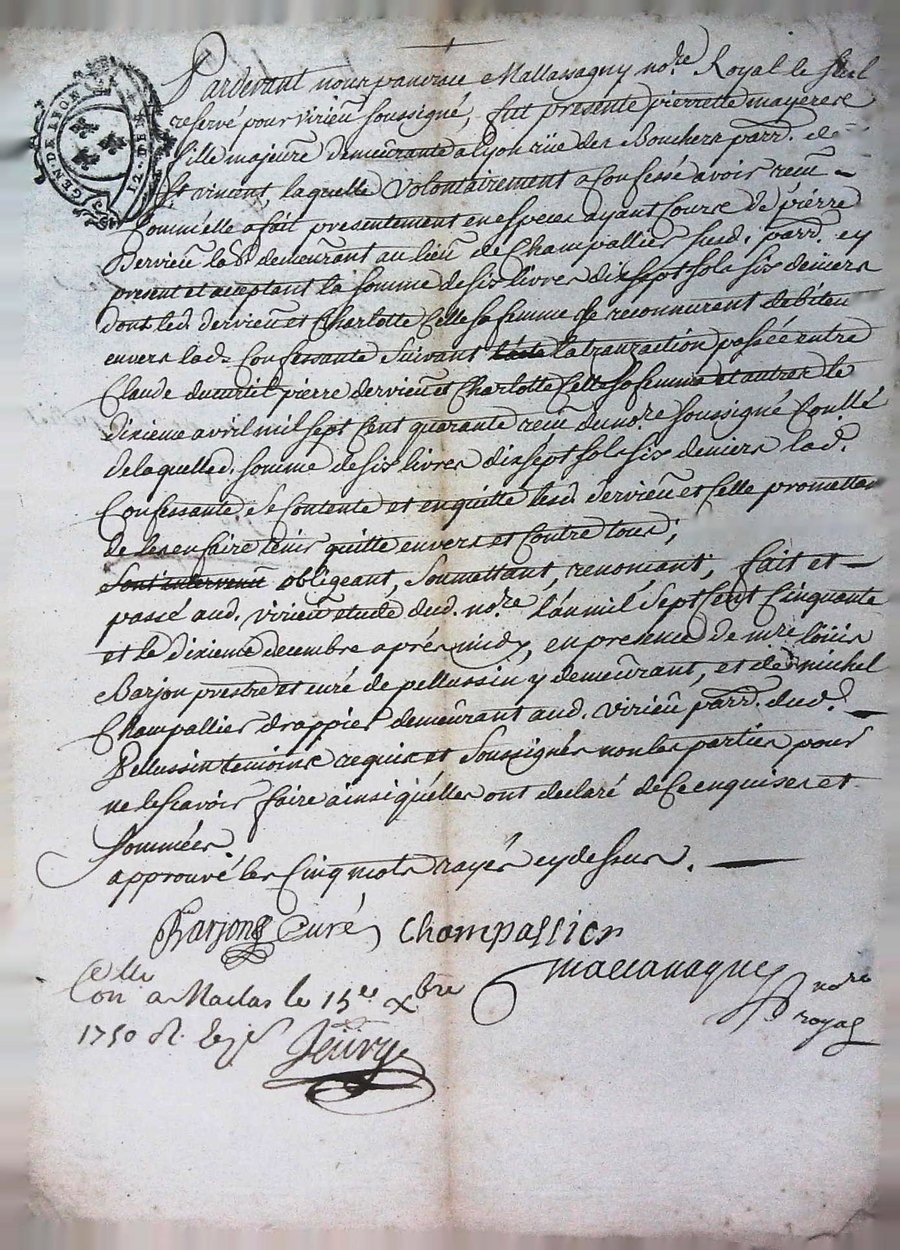 GEN. DE LYON
12. D. E. P.
Pardevant nous pancrace Mallassagny no.re Royal le scel
reservé pour virieu soussigné, fut presente pierrette mayere
fille majeure demeurante a Lyon rüe des Bouchers parr. de
St. vincent, laquelle volontairement a confessé avoir receu
comm'elle a fait presentement en especes ayant cours de pierre
Dervieu demeurant au lieu de Champallier susd. parr. cy
present et aceptant la somme de six livres dix sept sols six deniers
dont led. dervieu et Charlotte Celle sa femme se reconnurent debiteu
envers lad. Confessante suivant la tranzaction passée entre
Claude dumirit pierre dervieu et Charlotte Celle sa femme et autres le
dixieme avril mil sept cent quarante receu du no.re soussigné Conllé
de laquelle d. somme de six livres dix sept sols six deniers lad.
Confessante se contente et en quitte lesd. dervieu et Celle promettan
de les en faire tenir quitte envers et contre tous;
sont intervenu obligeant, soumettant, renonçant, fait et
passé aud. virieu etude dud. no.re l'an mil sept cent cinquante
et le dixieme decembre aprés midy, en presence de m.re loüis
Barjon prestre et curé de pellussin y demeurant, et de s.r michel
Champallier drappier demeurant aud. virieu parr. dud.
Pellussin temoins requis et soussignés non les parties pour
ne le scavoir faire ainsi qu'elles ont declaré de ce enquises et
sommées
approuvé les cinq mots rayés cy dessus.
Barjon Curé Champallier
no.re
royal
Con.llé a Maclas le 15.e Xbre
1750